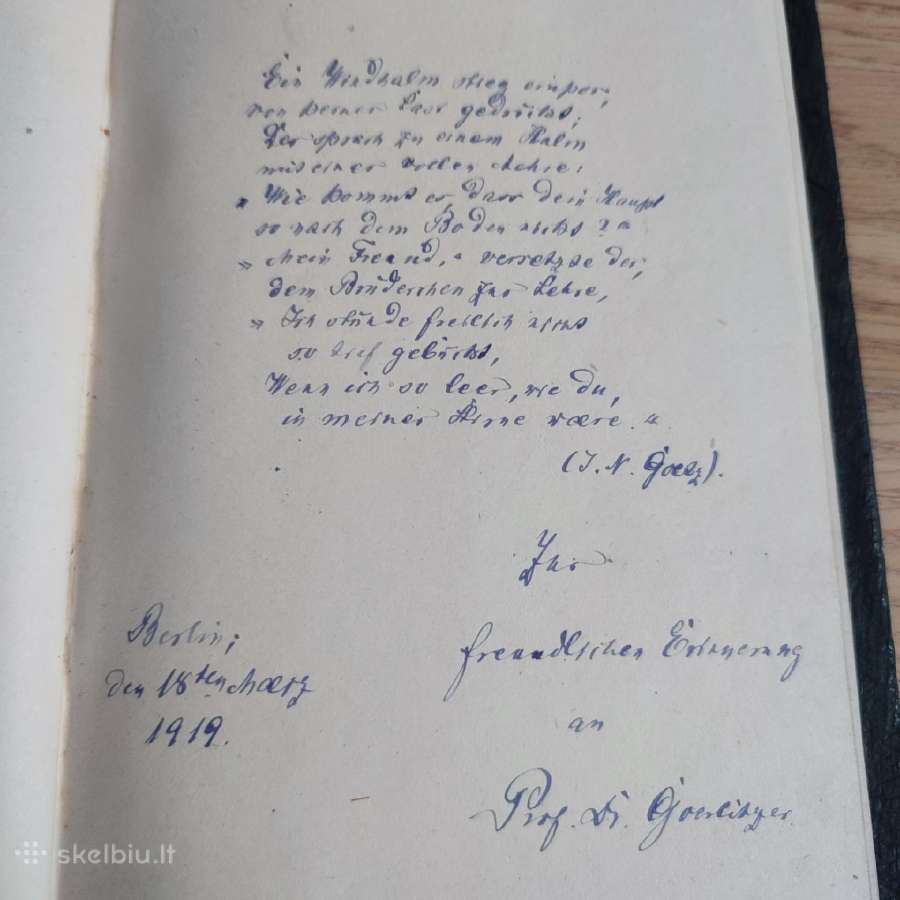 Ein Windhalm stieg empor,
von keiner Last gedrückt;
Der sprach zu einem Halm
mit einer vollen Aehre:
„Wie kommt es, dass dein Haupt
so nach dem Boden nickt?"
„Mein Freund," versetzte der,
dem Brüderchen zur Lehre,
„Ich stünde freilich nicht
so tief gebückt,
Wenn ich so leer, wie du,
in meiner Stirne waere."
(J. N. Goetz).
Zur
freundlichen Erinnerung
an
Prof. Dr. Goerlitzer
Berlin,
den 18ten Maerz
1919.
skelbiu.lt